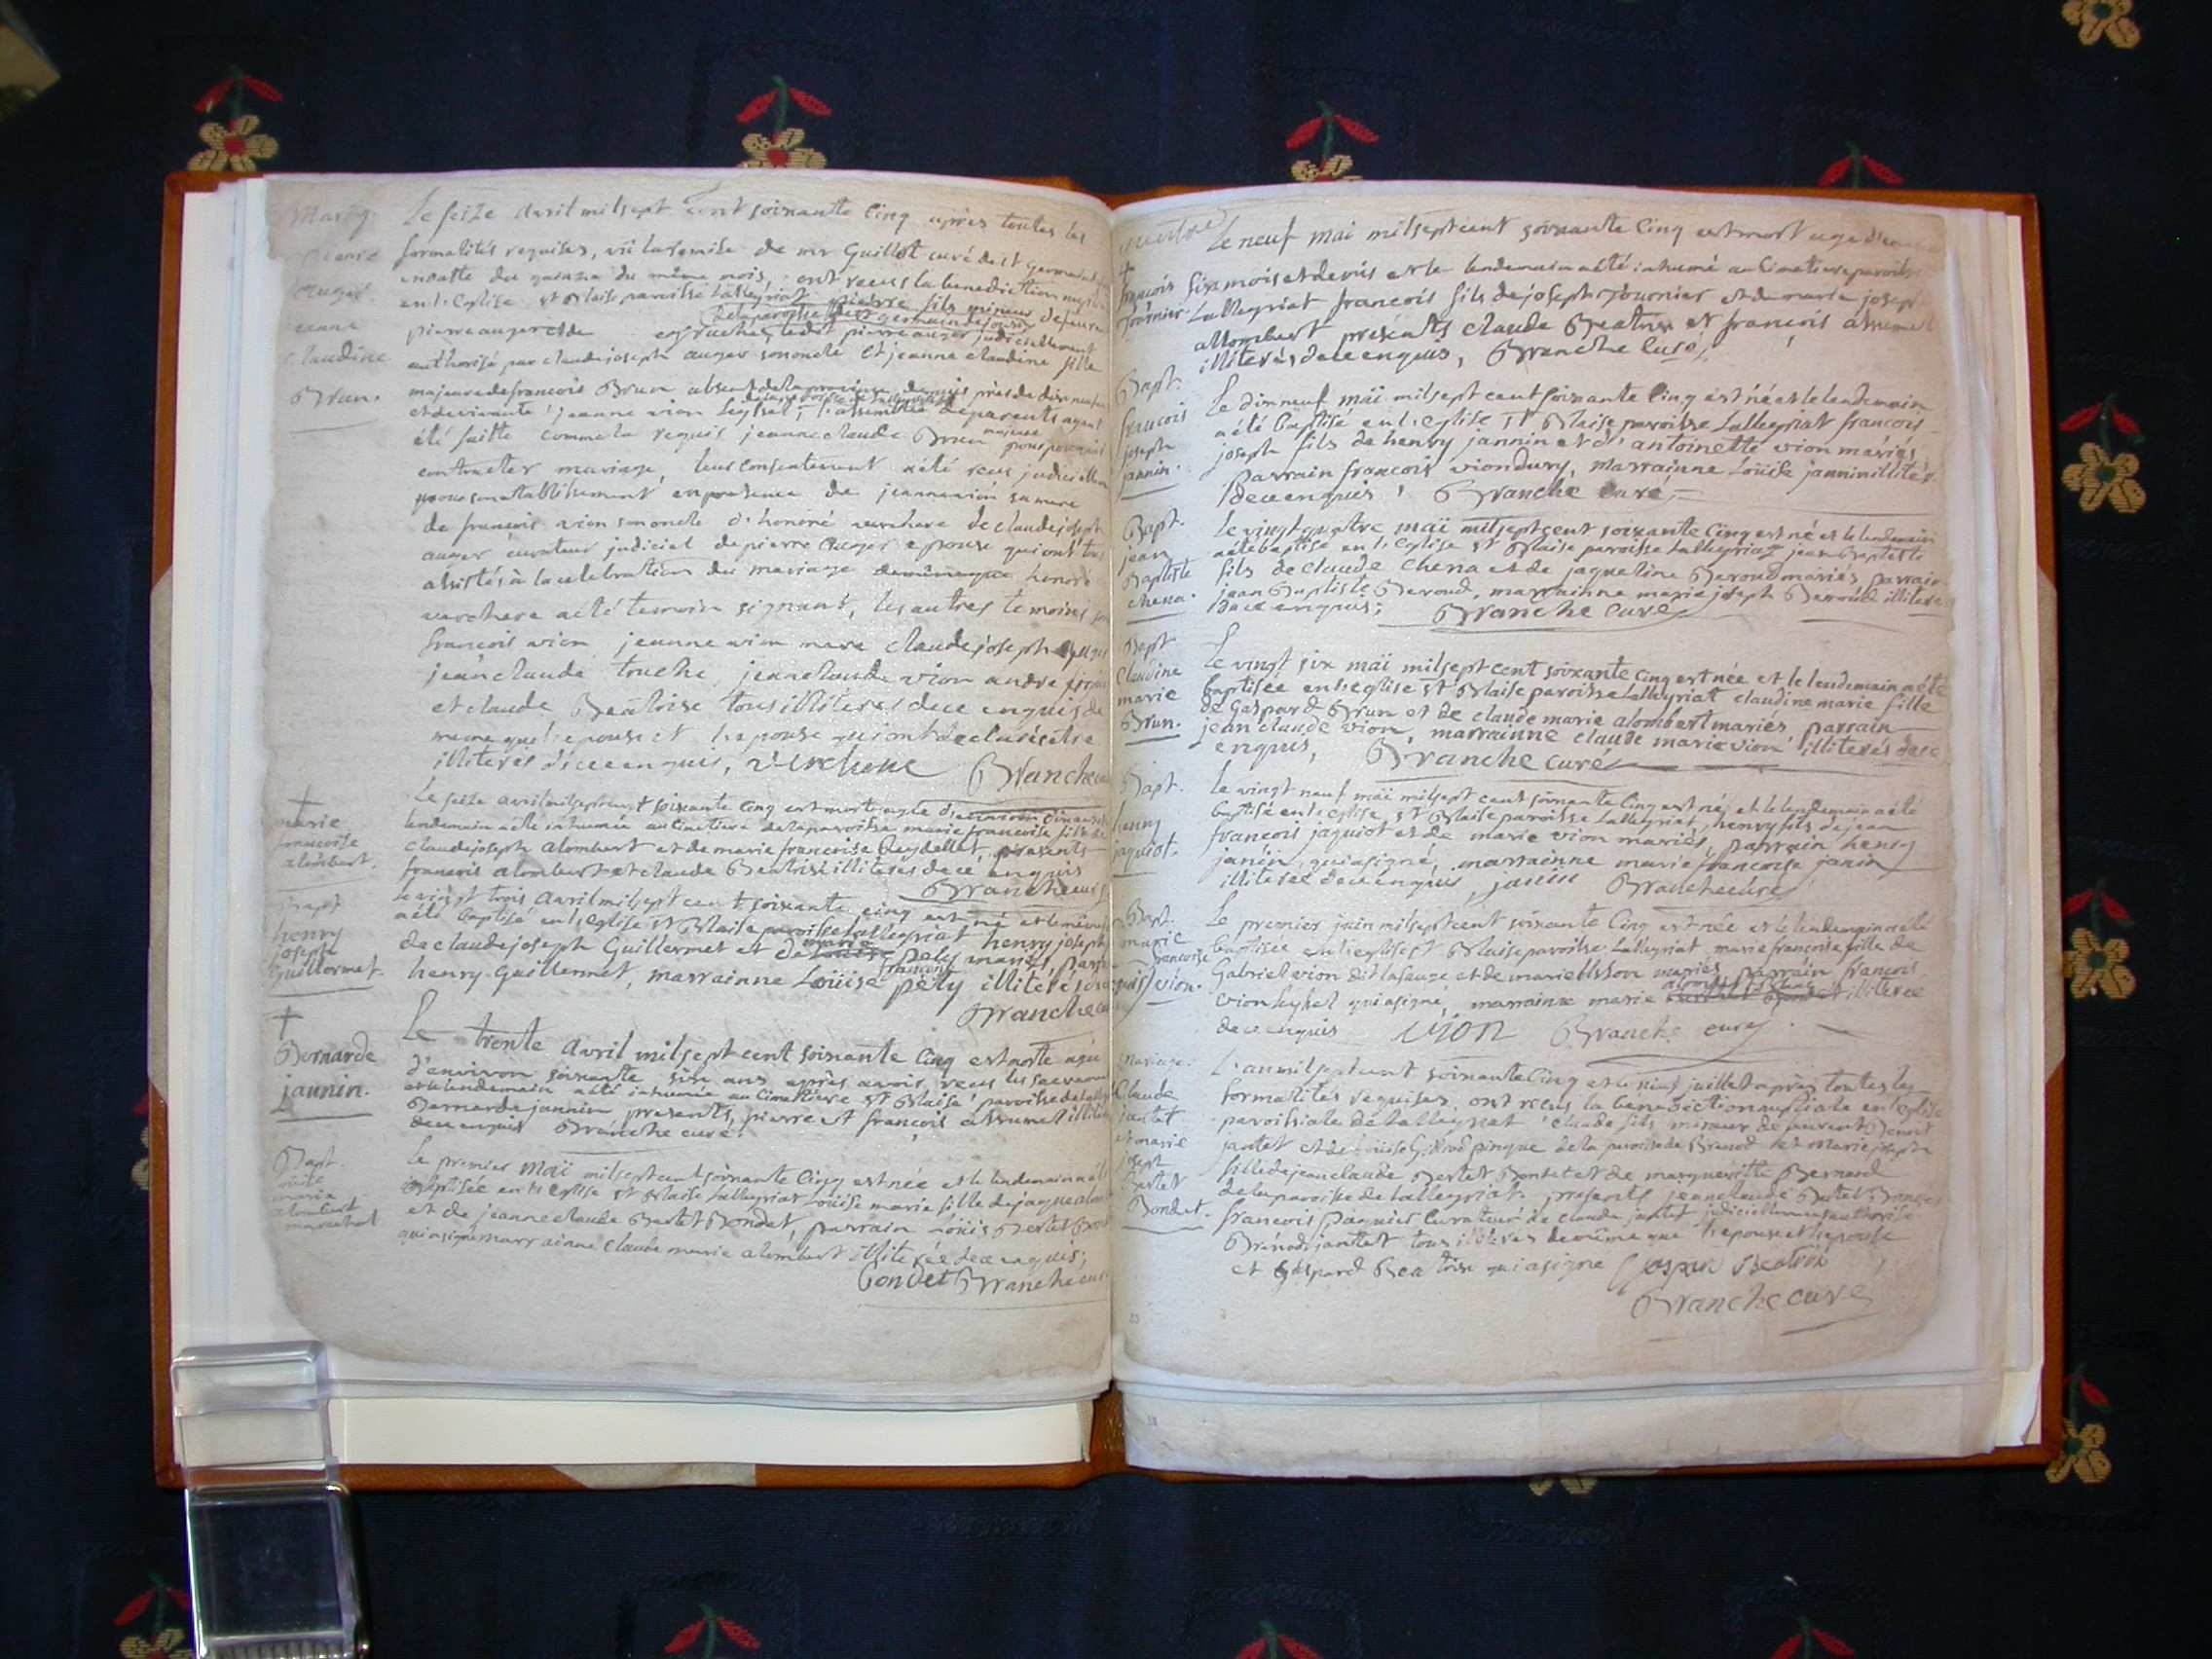 Mariag.
pierre
auger
jeanne
claudine
Brun.
Le seize avril mil sept cent soixante cinq après toutes les
formalités requises, vû la remise de mr Guillot curé de st germain
en datte du quinze du même mois, ont receu la benediction nuptiale
en l'eglise st Blaise paroisse Lalleyriat pierre fils mineur de feu
de la paroisse de st germain de joux
pierre auger et de ledit pierre auger judiciellement
authorisé par claude joseph auger son oncle et jeanne claudine fille
majeure de francois Brun absent de la province depuis près de dix neuf ans
et de vivante jeanne vion Leyssel; l'assemblée de parents ayant
été faitte comme la requis jeanne claude Brun majeure pour pouvoir
contracter mariage, leur consentement a été receu judiciellement
pour son etablissement en presence de jeanne vion sa mere
de francois vion son oncle d'honoré verchere de claude joseph
auger curateur judiciel de pierre auger epoux qui ont tous
assistés à la celebration du mariage de même que honoré
verchere a été temoin signant, les autres temoins
francois vion jeanne vion mere claude joseph auger
jean claude touche, jean claude vion andré
et claude Beatrise tous illiterés de ce enquis de
meme que l'epoux et l'epouse qui ont declarés être
illiterés de ce enquis, verchere Branche
†
marie
francoise
alombert.
Le seize avril mil sept cent soixante cinq est morte agée d'environ
lendemain a été inhumée au Cimetiere de la paroisse marie francoise fille de
claude joseph alombert et de marie francoise Reydellet, presents
francois alombert et claude Beatrise illiterés de ce enquis
Branche curé
Bapt
henry
joseph
guillermet.
Le vingt trois avril mil sept cent soixante cinq est né et le même
a été baptisé en l'eglise st Blaise paroisse Lalleyriat henry joseph
de claude joseph Guillermet et de marie pely mariés, parrain
henry Guillermet, marrainne Loüise francoise pely illiterés
Branche
†
Bernarde
jannin.
Le trente avril mil sept cent soixante cinq est morte agée
d'environ soixante six ans après avoir receu les sacrements
et le lendemain a été inhumée au Cimetiere st Blaise paroisse de
Bernarde jannin presents, pierre et françois assumel
de ce enquis Branche curé.
Bapt.
loüise
marie
alombert
marechal
Le premier maï mil sept cent soixante cinq est née et le lendemain a été
baptisée en l'eglise st Blaise Lalleyriat Loüise marie fille de jaque
et de jeanne claude Bertet Bondet, parrain Loüis Bertet
qui a signé marrainne claude marie alombert illiterée de ce enquis;
Bondet Branche curé
†
francois
fournier.
Le neuf mai mil sept cent soixante cinq est mort agé d'environ
six mois et demis et le lendemain a été inhumé au Cimetiere paroisse
Lalleyriat francois fils de joseph fournier et de marie joseph
allombert presents claude Beatrise et françois assumel
illiterés de ce enquis, Branche Curé,
Bapt.
francois
joseph
jannin.
Le dix neuf maï mil sept cent soixante cinq est né et le lendemain
a été baptisé en l'eglise st Blaise paroisse Lalleyriat francois
joseph fils de henry jannin et d'antoinette vion mariés,
Parrain francois vion dury, marrainne Loüise jannin illiterés
de ce enquis, Branche curé,
Bapt.
jean
Baptiste
chena.
Le vingt quatre maï mil sept cent soixante cinq est né et le lendemain
a été baptisé en l'eglise st Blaise paroisse Lalleyriat jean Baptiste
fils de claude chena et de jaqueline Beroud mariés, parrain
jean Baptiste Beroud, marrainne marie joseph Beroud illiterés
de ce enquis; Branche curé
Bapt
Claudine
marie
Brun.
Le vingt six maï mil sept cent soixante cinq est née et le lendemain a été
baptisée en l'eglise st Blaise paroisse Lalleyriat claudine marie fille
de Gaspard Brun et de claude marie alombert mariés, parrain
jean claude vion, marrainne claude marie vion, illiterés de ce
enquis, Branche curé
Bapt.
henry
jaquiot.
Le vingt neuf maï mil sept cent soixante cinq est né et le lendemain a été
baptisé en l'eglise st Blaise paroisse Lalleyriat, henry fils de jean
francois jaquiot et de marie vion mariés, parrain henry
janin, qui a signé, marrainne marie francoise janin
illiterée de ce enquis, janin Branche curé
Bapt.
marie
francoise
vion.
Le premier juin mil sept cent soixante cinq est née et le lendemain a été
baptisée en l'eglise st Blaise paroisse Lalleyriat marie francoise fille de
Gabriel vion dit et de marie mariés, parrain francois
vion leyssel qui a signé, marrainne marie illiterée
de ce enquis vion Branche curé.
mariage.
Claude
jantet
et marie
joseph
Bertet
Bondet.
L'an mil sept cent soixante cinq et le juillet après toutes les
formalités requises, ont receu la bénédiction nuptiale en l'eglise
paroissiale de Lalleyriat claude fils mineur de Benoit
jantet et de Loüise pingue de la paroisse de Brenod et marie joseph
fille de jean claude Bertet Bondet et de marguerite Bernard
de la paroisse de Lalleyriat. presents jean claude Bertet Bondet
francois paquier Curateur de claude jantet judiciellement authorisé
jantet tous illiterés de même que l'epoux et l'epouse
et Gaspard Beatrix qui a signé Gaspar Beatrix
Branche curé